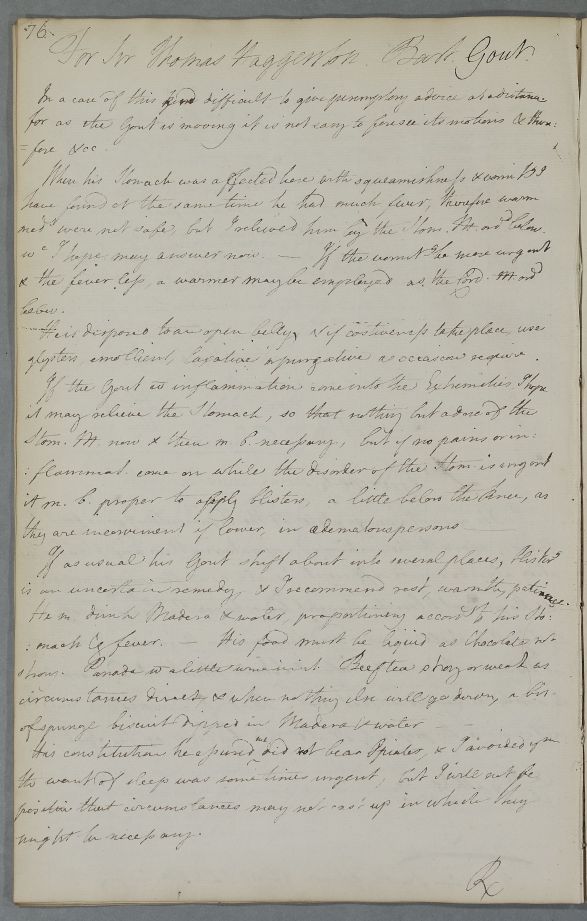 76.
For Sir Thomas Haggerston. Bart. Gout.
In a case of this kind difficult to give peremptory advice at a distance
for as the Gout is moving it is not easy to foresee its motions & there
=fore &cc.
When his Stomach was affected here with squeamishness & vomitgs I
have found at the same time he had much fever, therefore warm
medns were not safe, but I relieved him by the Stom. M. ord below.
wc I hope may answer now. — If the vomitgs be more urgent
& the fever less, a warmer may be employed as the Cord. M ord
below.
He is disposed to an open belly, & if costiveness take place, use
glysters emollient, laxative or purgative as occasion require.
If the Gout as inflammation come into the Extremities I hope
it may relieve the Stomach, so that nothing but a dose of the
Stom. M. now & then m. b. necessary, but if no pains or in:
:flammat. come on while the disorder of the Stom. is urgent
it m. b. proper to apply blisters, a little below the knee, as
they are inconvenient if lower, in œdematous persons
If as usual his Gout shift about into several places, blisters
is an uncertain remedy, & I recommend rest, warmth, patience.
He m. drink Madera & water, proportioning accord to his Sto:
:mach & fever. — His food must be liquid as Chocolate not
strong. Panada wt a little wine in it. Beef tea strong or weak as
circumstances direct, & when nothing else will go down, a bit
of spunge biscuit dipped in Madera & water —
His constitution he assured me did not bear Opiates, & I avoided ym
tho want of sleep was sometimes urgent, but I will not be
positive that circumstances may not cast up in which they
might be necessary.
Rx